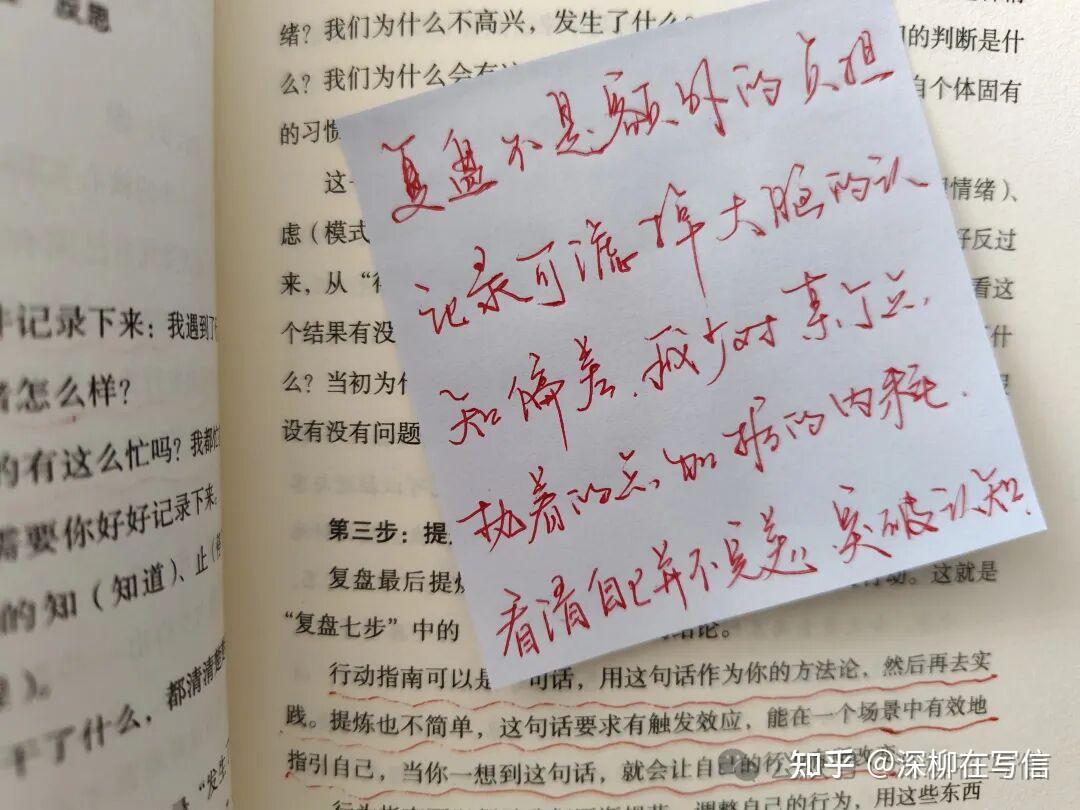 反思
记录下来：我遇到了
怎么样？
的有这么忙吗？我都忙
需要你好好记录下来。
的知（知道）、止（
）。
干了什么，都清清楚楚
“发生
绪？我们为什么不高兴，发生了什么？ 的判断是什
么？我们为什么会有 自个体固有
的习惯
这
虑（模式 情绪）、
来，从“ 好反过
个结果有没 看这
么？当初为什 什
设有没有问题
复盘不是额外的负担
记录可滤掉大脑的认
知偏差,减少对某个点,
执着的点, 的内耗.
看清自己并不完美,突破认知.
第三步：提
复盘最后提炼 动。这就是
“复盘七步”中的 结论。
行动指南可以是 句话，用这句话作为你的方法论，然后再去实
践。提炼也不简单，这句话要求有触发效应，能在一个场景中有效地
指引自己，当你一想到这句话，就会让自己的行
调整自己的行为，用这些东西
知乎 @深柳在写信